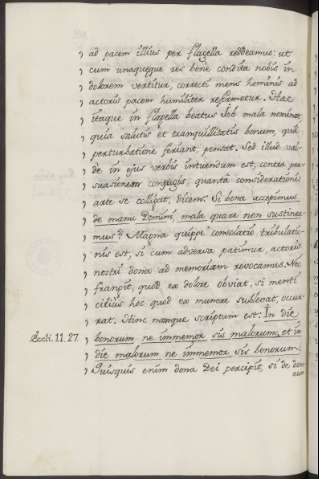 ad pacem illius per flagella redeamus: ut
cum unaquaeque res bene condita nobis in
dolorem vertitur, correcti mens humanis ad
actoris pacem humiliter reformetur. Haec
itaque in flagella beatus Job mala nominat,
quia salutis et tranquillitatis bonum, qua
perturbatione feriant, pensat. Sed illud val-
de in ejus verbis intuendum est, contra per-
suasionem conjugis, quanta considerationis
arte se colligat, dicens: Si bona accepimus
de manu Domini, mala quare non sustinea-
mus? Magna quippe consolatio tribulatio-
nis est, si cum adversa patimur, actoris
nostri dona ad memoriam revocamus. Nec
frangit, quod ex dolore obviat, si menti
citius hoc quod ex munere sublevat, occur-
rat. Hinc namque scriptum est: In die
Eccli. 11. 27. bonorum ne immemor sis malorum, et in
die malorum ne immemor sis bonorum.
Quisquis enim dona Dei percipit, si de